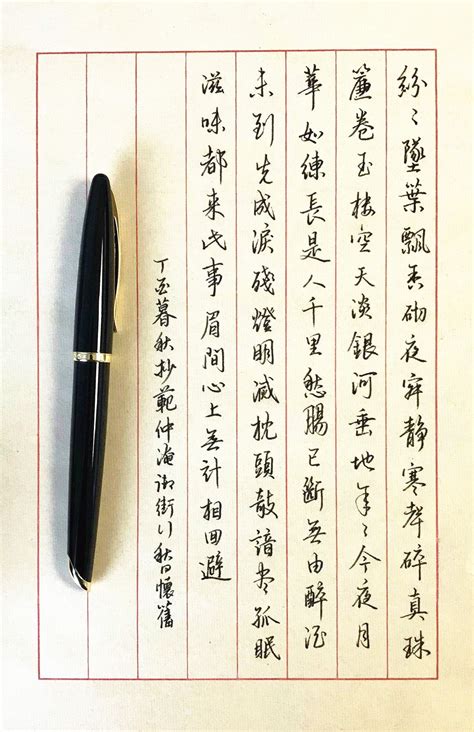 紛〻墜葉飄香砌夜寂靜寒聲碎真珠
簾卷玉樓空天淡銀河垂地年〻今夜月
華如練長是人千里愁腸已斷無由醉酒
未到先成淚殘燈明滅枕頭敧諳盡孤眠
滋味都來此事眉間心上無計相回避
丁酉暮秋抄範仲淹御街行秋日懷舊